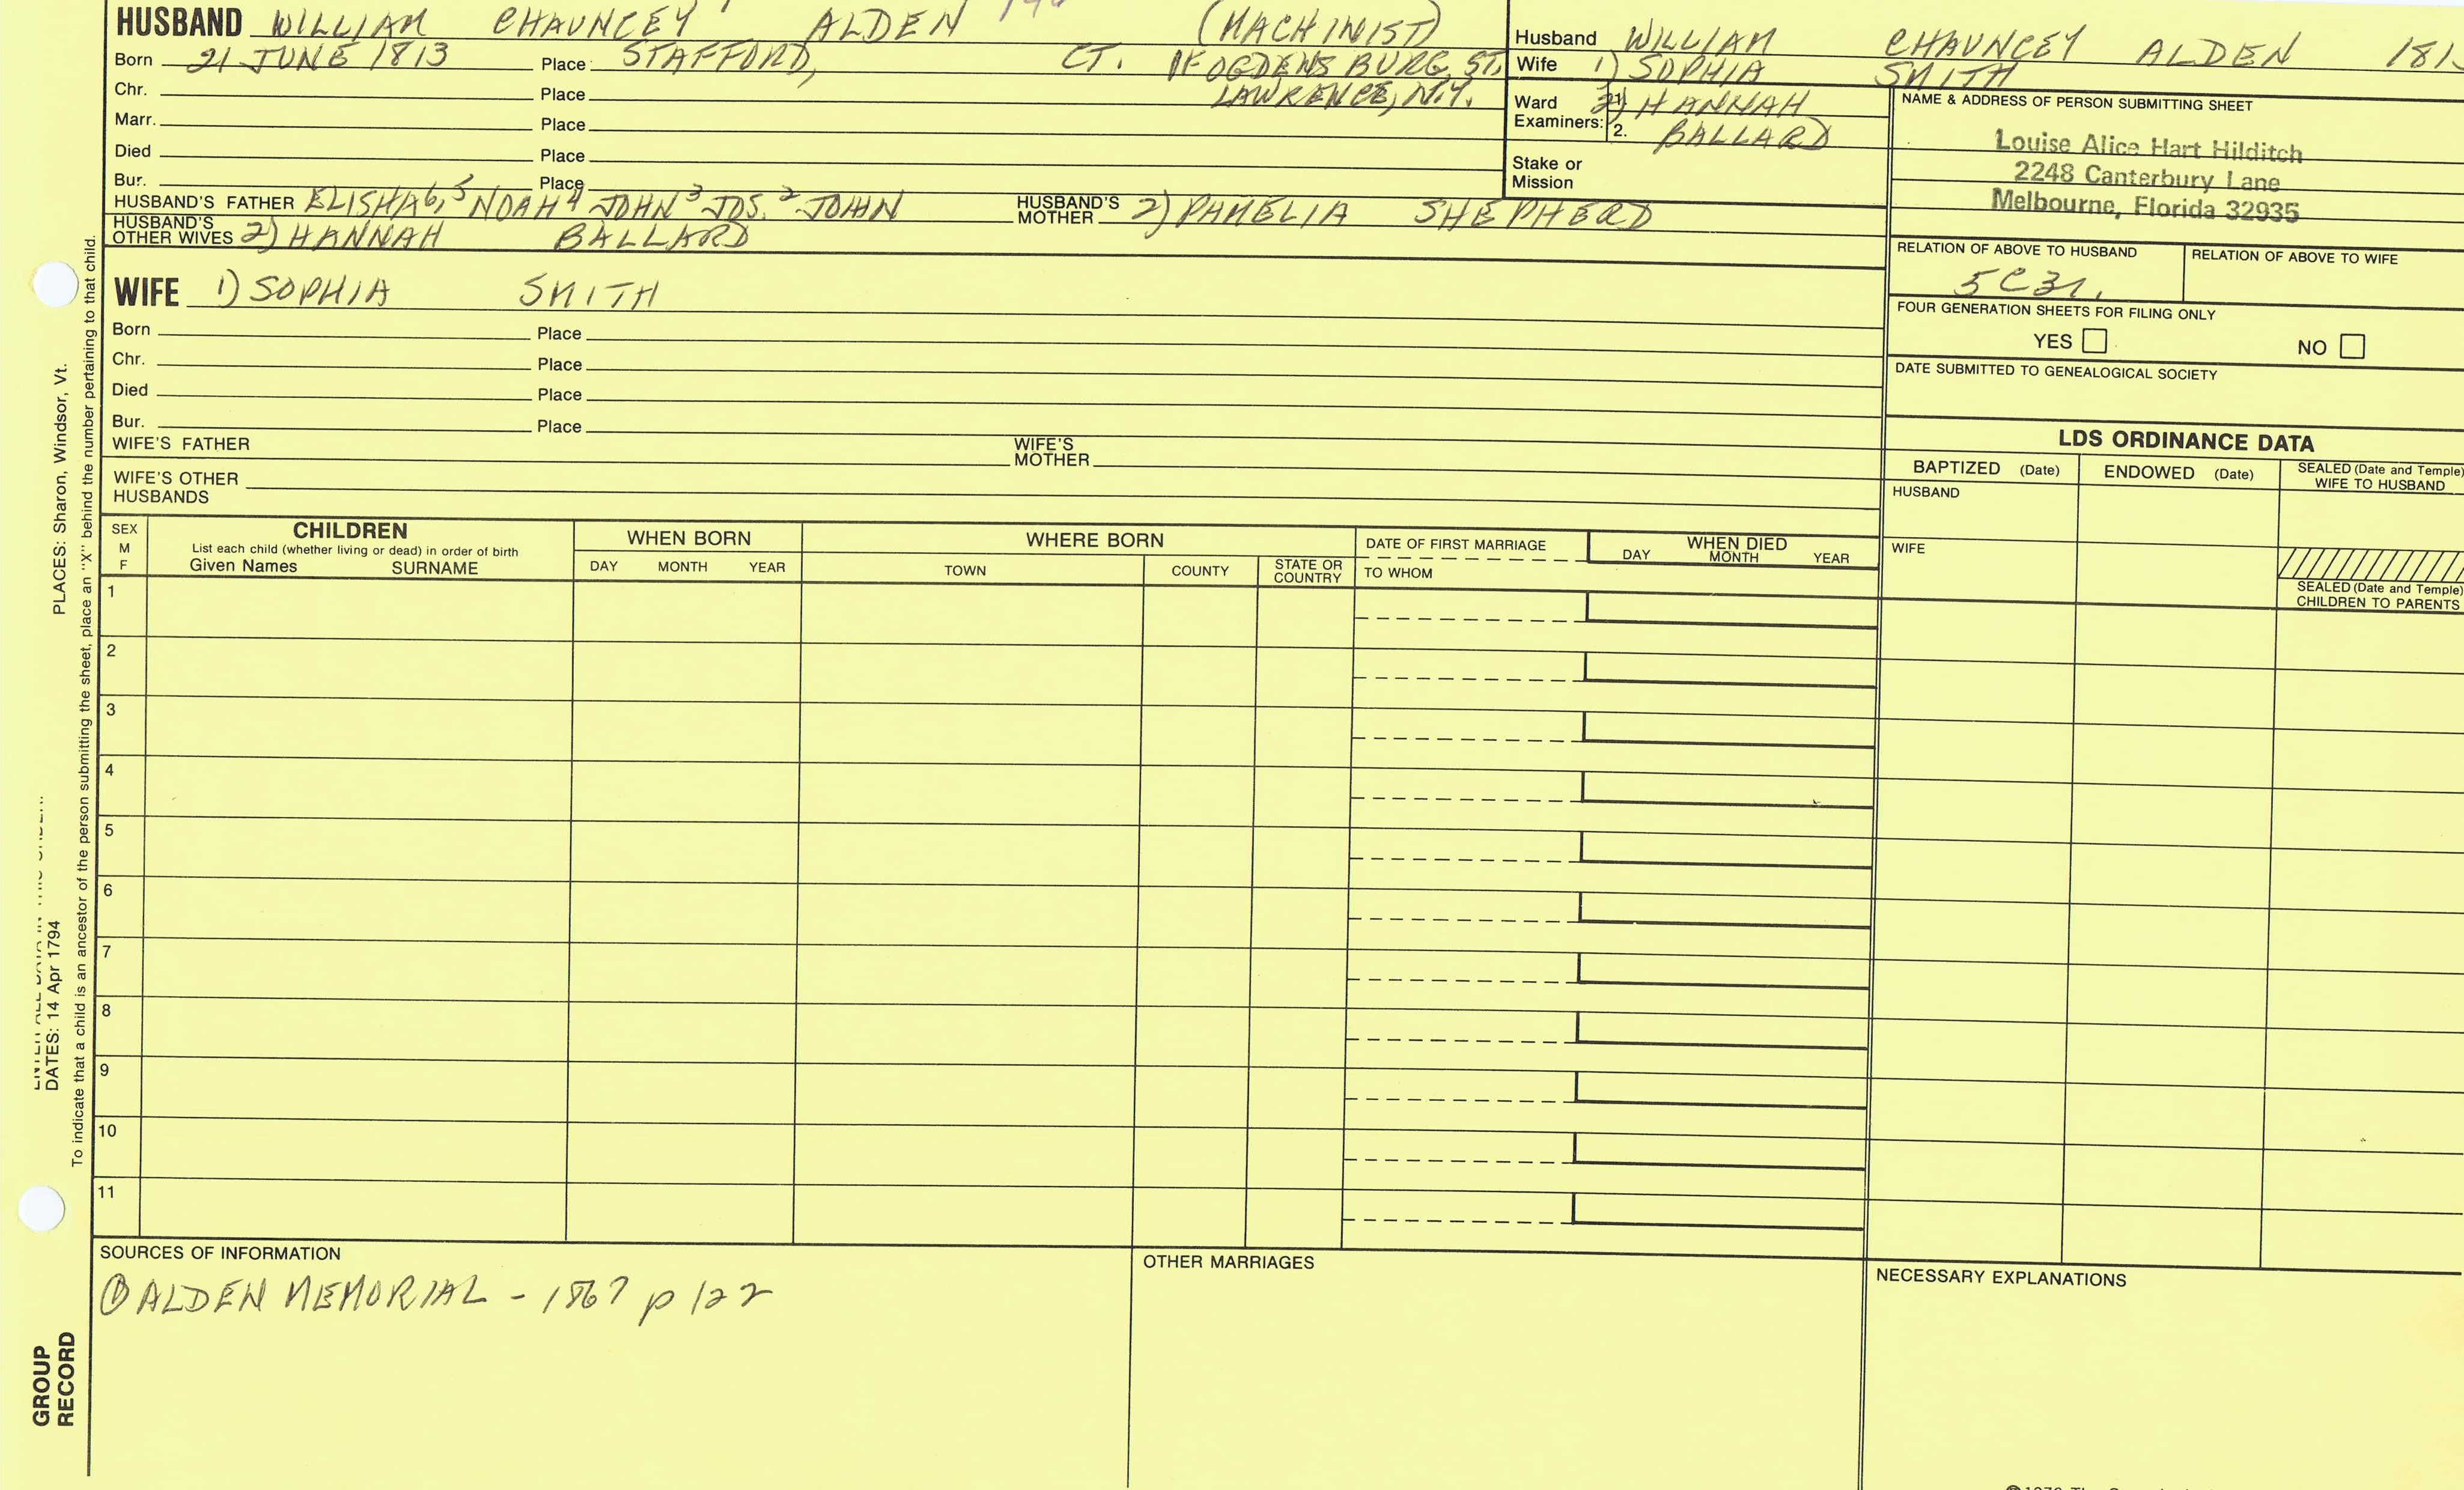 HUSBAND WILLIAM CHAUNCEY ALDEN (MACHINIST)
Born 21 JUNE 1813 Place STAFFORD, CT. OF OGDENSBURG, ST.
Chr. Place LAWRENCE, N.Y.
Marr. Place
Died Place
Bur. Place
HUSBAND'S FATHER ELISHA6, 5 NOAH4 JOHN3 JOS.2 JOHN HUSBAND'S MOTHER 2) PAMELIA SHEPHERD
HUSBAND'S OTHER WIVES 2) HANNAH BALLARD
WIFE 1) SOPHIA SMITH
Born Place
Chr. Place
Died Place
Bur. Place
WIFE'S FATHER WIFE'S MOTHER
WIFE'S OTHER HUSBANDS
Husband WILLIAM CHAUNCEY ALDEN 181
Wife 1) SOPHIA SMITH
Ward 2) HANNAH
Examiners: 2. BALLARD
Stake or
Mission
NAME & ADDRESS OF PERSON SUBMITTING SHEET
Louise Alice Hart Hilditch
2248 Canterbury Lane
Melbourne, Florida 32935
RELATION OF ABOVE TO HUSBAND RELATION OF ABOVE TO WIFE
5C3r.
FOUR GENERATION SHEETS FOR FILING ONLY
YES NO
DATE SUBMITTED TO GENEALOGICAL SOCIETY
LDS ORDINANCE DATA
BAPTIZED (Date) ENDOWED (Date) SEALED (Date and Temple)
WIFE TO HUSBAND
HUSBAND
WIFE
SEALED (Date and Temple)
CHILDREN TO PARENTS
SEX
M
F
CHILDREN
List each child (whether living or dead) in order of birth
Given Names SURNAME
WHEN BORN
DAY MONTH YEAR
WHERE BORN
TOWN COUNTY STATE OR
COUNTRY
DATE OF FIRST MARRIAGE
TO WHOM
WHEN DIED
DAY MONTH YEAR
1
2
3
4
5
6
7
8
9
10
11
SOURCES OF INFORMATION
① ALDEN MEMORIAL - 1867 p 122
OTHER MARRIAGES
NECESSARY EXPLANATIONS
DATES: 14 Apr 1794 PLACES: Sharon, Windsor, Vt.
To indicate that a child is an ancestor of the person submitting the sheet, place an "X" behind the number pertaining to that child.
GROUP
RECORD